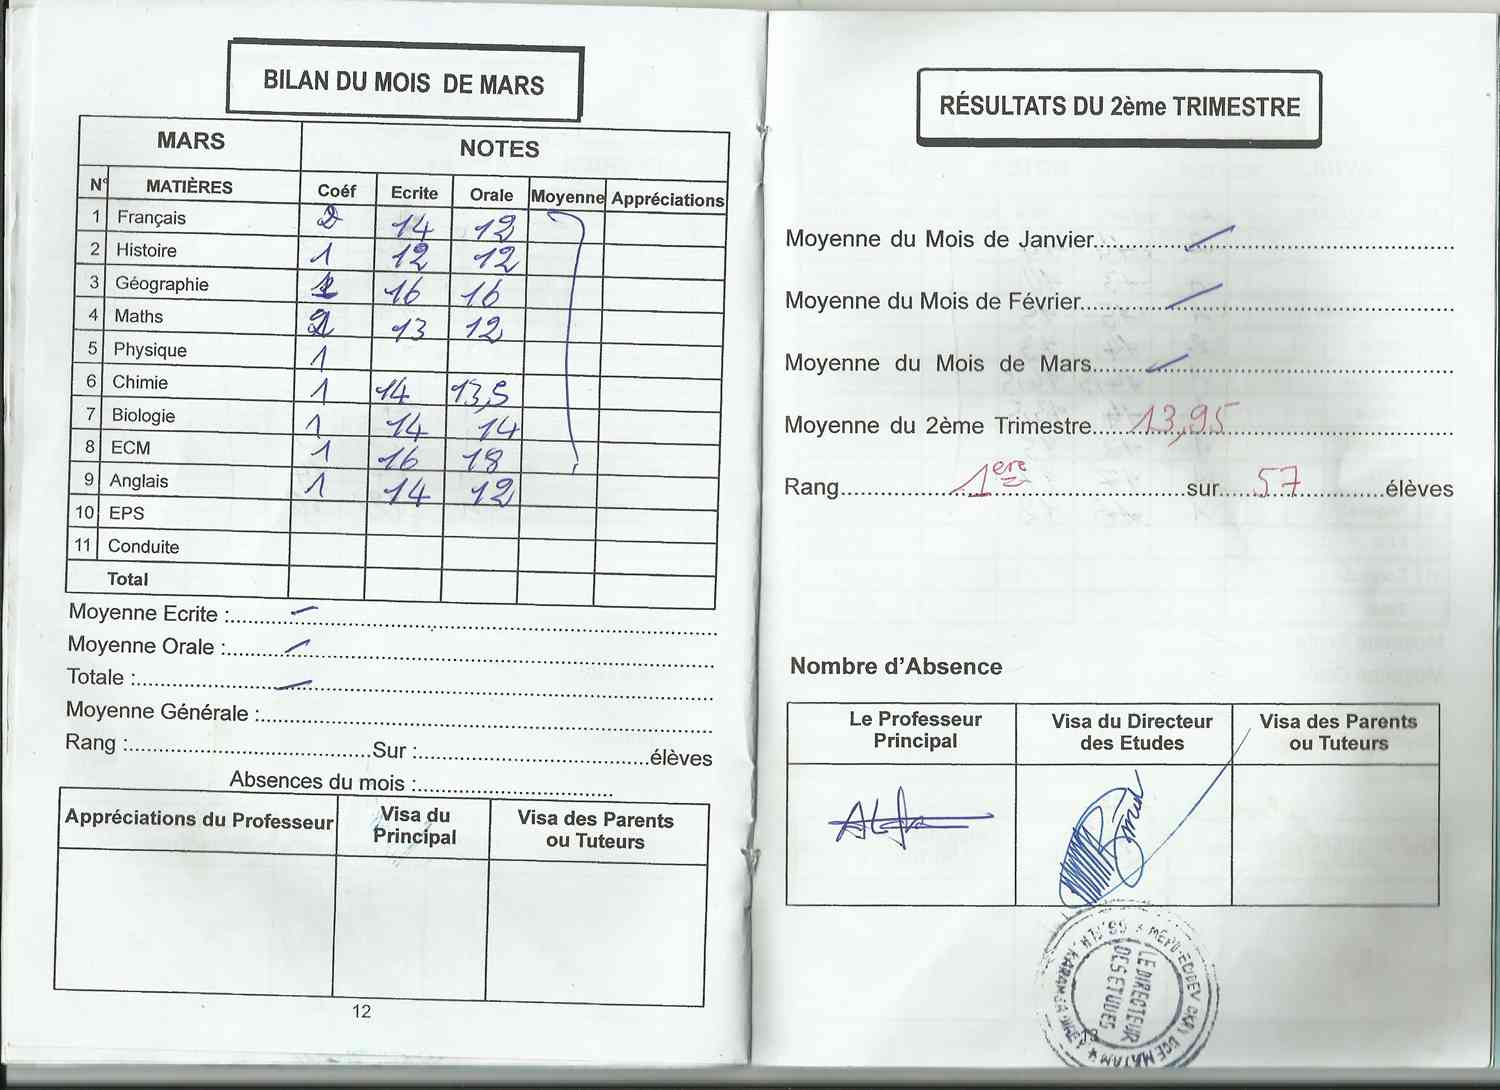 BILAN DU MOIS DE MARS
MARS NOTES
N° MATIÈRES Coéf Ecrite Orale Moyenne Appréciations
1 Français 2 14 12
2 Histoire 1 12 12
3 Géographie 1 16 16
4 Maths 2 13 12
5 Physique 1
6 Chimie 1 14 13,5
7 Biologie 1 14 14
8 ECM 1 16 18
9 Anglais 1 14 12
10 EPS
11 Conduite
Total
Moyenne Ecrite :
Moyenne Orale :
Totale :
Moyenne Générale :
Rang : Sur : élèves
Absences du mois :
Appréciations du Professeur
Visa du Principal
Visa des Parents ou Tuteurs
12
RÉSULTATS DU 2ème TRIMESTRE
Moyenne du Mois de Janvier
Moyenne du Mois de Février
Moyenne du Mois de Mars
Moyenne du 2ème Trimestre 13,95
Rang 1ere sur 57 élèves
Nombre d'Absence
Le Professeur Principal
Visa du Directeur des Etudes
Visa des Parents ou Tuteurs
LE DIRECTEUR
DES ETUDES